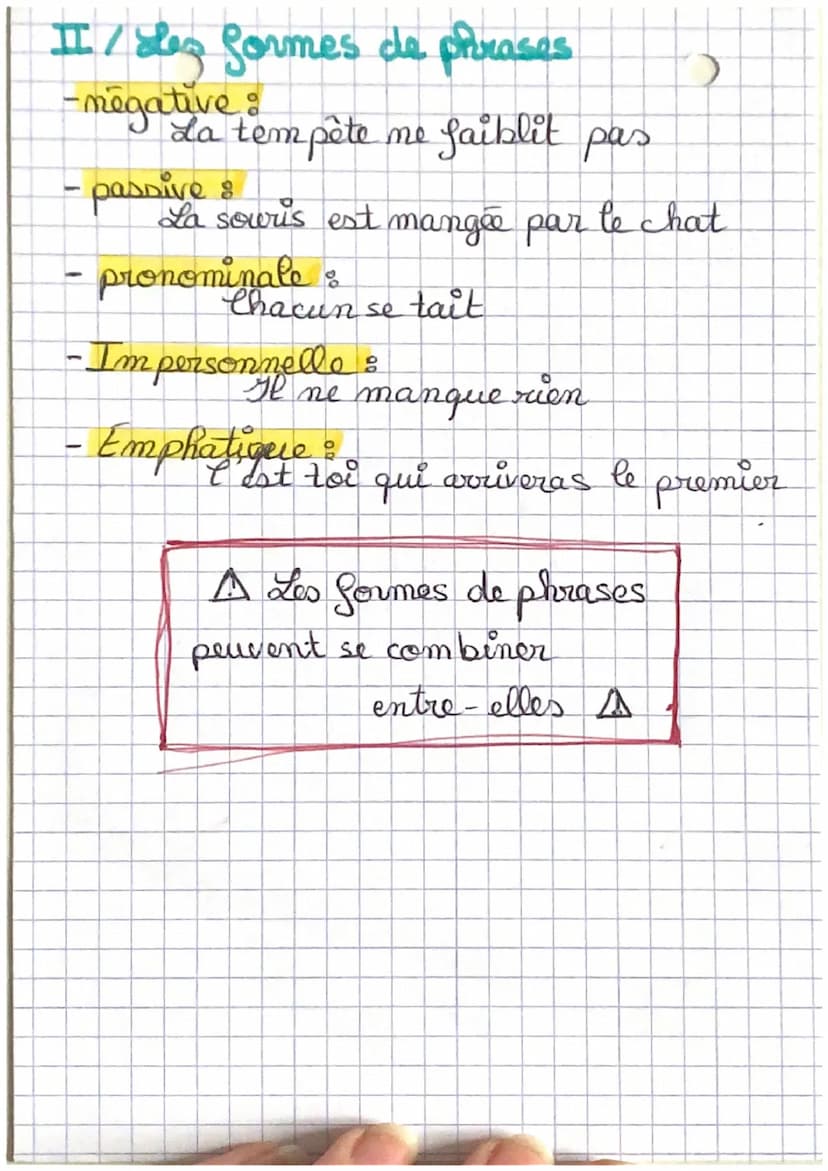 II / Les formes de phrases
- négative :
La tempête ne faiblit pas
- passive :
La souris est mangée par le chat
- pronominale :
Chacun se tait
- Impersonnelle :
Il ne manque rien
- Emphatique :
C'est toi qui arriveras le premier
⚠ Les formes de phrases
peuvent se combiner
entre-elles ⚠